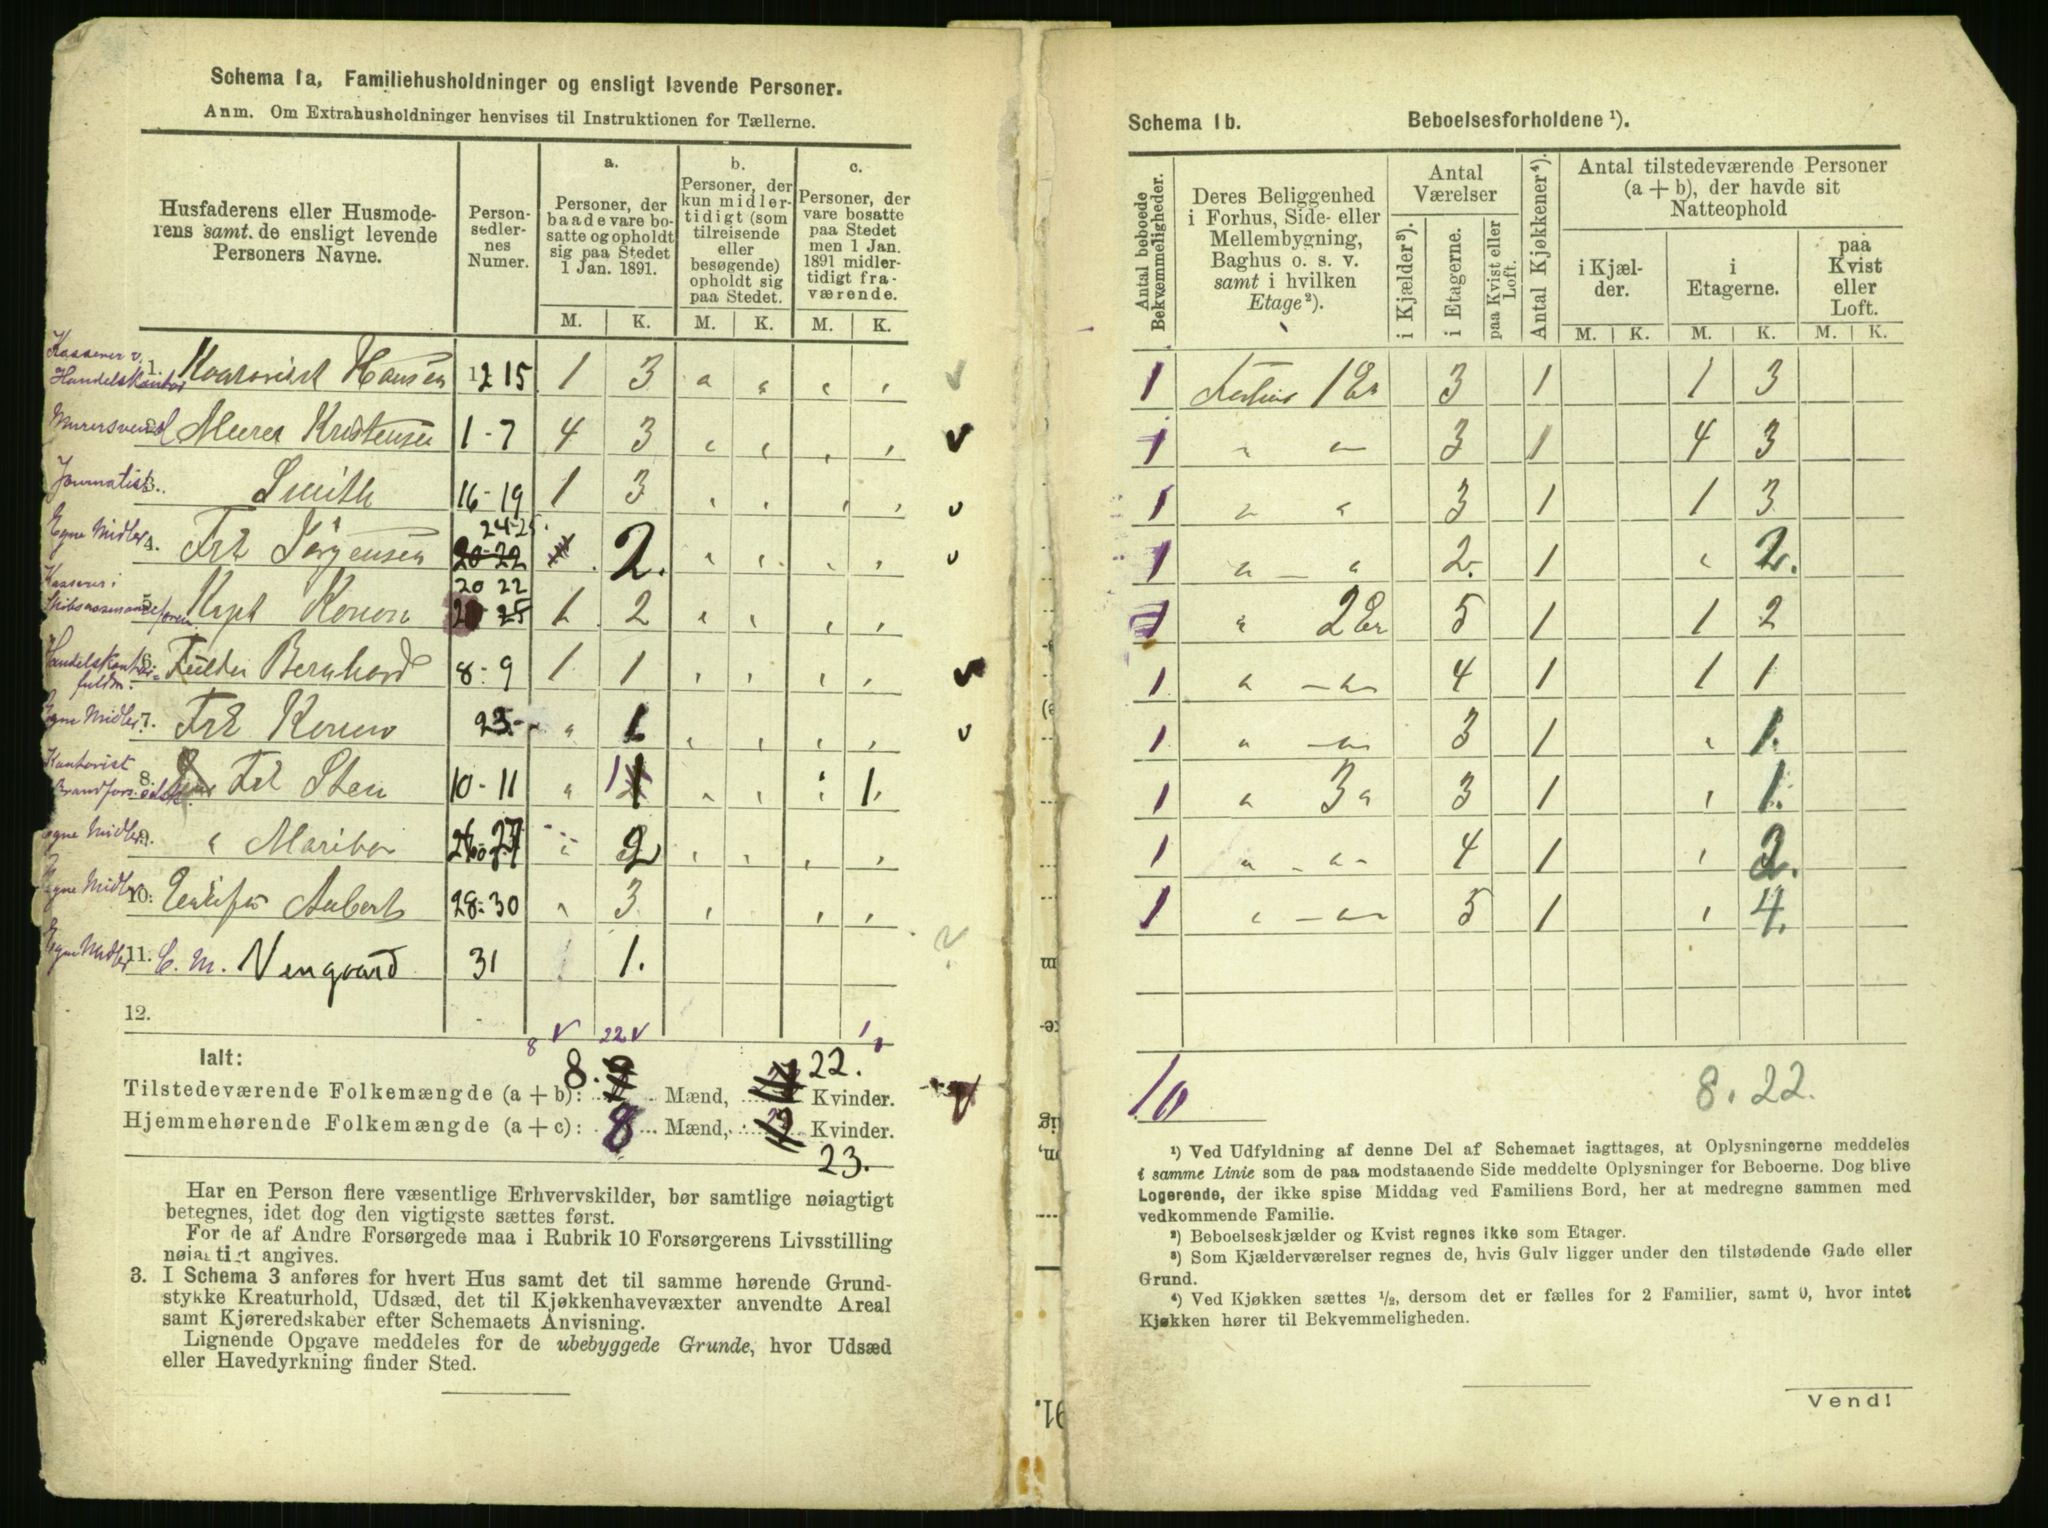 Schema 1a, Familiehusholdninger og ensligt levende Personer.
Anm. Om Extrahusholdninger henvises til Instruktionen for Tællerne.
Husfaderens eller Husmoderens samt de ensligt levende Personers Navne.
Personsedlernes Numer.
a.
Personer, der baade vare bosatte og opholdt sig paa Stedet 1 Jan. 1891.
b.
Personer, der kun midlertidigt (som tilreisende eller besøgende) opholdt sig paa Stedet.
c.
Personer, der vare bosatte paa Stedet men 1 Jan. 1891 midlertidigt fraværende.
M. K. M. K. M. K.
Kasserer v. Handelskontor 1. Hansen 12 15 1 3
Murersvend 2. Murer Kristensen 1-7 4 3
Journalist 3. Smith 16-19 1 3
24-25.
Egne Midler 4. Frk Jörgensen 20-22 2.
20 22
Kasserer i 5. Kapt Konow 25 1 2
Handelskontorfuldm. 6. Bernhard 8-9 1 1
Egne Midler 7. Frk Konow 23.- 1
Kontorist 8. Frk Sten 10-11 1 1.
Egne Midler 9. " 26-27 2
Egne Midler 10. Aubert 28-30 3
Egne Midler 11. C. M. 31 1 1.
12.
8 22 1
Ialt:
8. 22.
Tilstedeværende Folkemængde (a + b): Mænd, Kvinder.
Hjemmehørende Folkemængde (a + c): 8 Mænd, Kvinder.
23.
Har en Person flere væsentlige Erhvervskilder, bør samtlige nøiagtigt
betegnes, idet dog den vigtigste sættes først.
For de af Andre Forsørgede maa i Rubrik 10 Forsørgerens Livsstilling
nøiagtigt angives.
3. I Schema 3 anføres for hvert Hus samt det til samme hørende Grund-
stykke Kreaturhold, Udsæd, det til Kjøkkenhavevæxter anvendte Areal
samt Kjøreredskaber efter Schemaets Anvisning.
Lignende Opgave meddeles for de ubebyggede Grunde, hvor Udsæd
eller Havedyrkning finder Sted.
Schema 1b. Beboelsesforholdene ¹).
Antal beboede Bekvæmmeligheder.
Deres Beliggenhed i Forhus, Side- eller Mellembygning, Baghus o. s. v. samt i hvilken Etage ²).
Antal Værelser
i Kjælder ³).
i Etagerne.
paa Kvist eller Loft.
Antal Kjøkkener ⁴).
Antal tilstedeværende Personer (a + b), der havde sit Natteophold
i Kjælder.
i Etagerne.
paa Kvist eller Loft.
M. K. M. K. M. K.
1 Forhus 1 Et 3 1 1 3
1 " " 3 1 4 3
1 " " 3 1 1 3
1 " " 2. 1 " 2.
1 " 2 Et 5 1 1 2
1 " " 4 1 1 1
1 " " 3 1 " 1.
1 " 3 " 3 1 " 1.
1 " " 4 1 " 2.
1 " " 5 1 " 4.
10 8. 22.
¹) Ved Udfyldning af denne Del af Schemaet iagttages, at Oplysningerne meddeles
i samme Linie som de paa modstaaende Side meddelte Oplysninger for Beboerne. Dog blive
Logerende, der ikke spise Middag ved Familiens Bord, her at medregne sammen med
vedkommende Familie.
²) Beboelseskjælder og Kvist regnes ikke som Etager.
³) Som Kjælderværelser regnes de, hvis Gulv ligger under den tilstødende Gade eller
Grund.
⁴) Ved Kjøkken sættes ½, dersom det er fælles for 2 Familier, samt 0, hvor intet
Kjøkken hører til Bekvemmeligheden.
Vend!